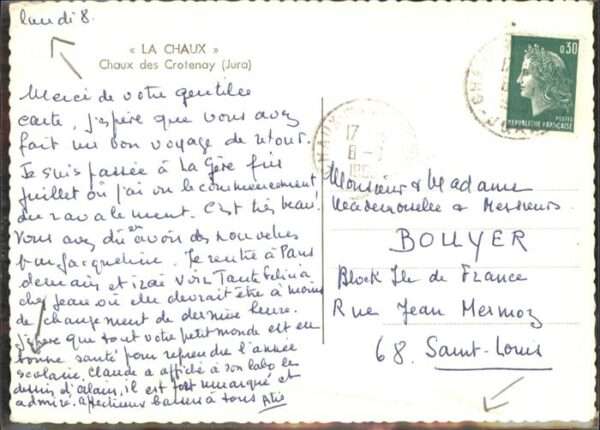 lundi 8.
« LA CHAUX »
Chaux des Crotenay (Jura)
Merci de votre gentille
carte, j'espère que vous avez
fait un bon voyage de retour.
Je suis passée à La Gère fin
juillet où j'ai vu le commencement
du ravalement. C'est très beau!
Vous avez dû en avoir des nouvelles
par Jacqueline. Je rentre à Paris
demain et irai voir Tante
chez Jean où elle devrait être à moins
de changement de dernière heure.
J'espère que tout votre petit monde est en
bonne santé pour reprendre l'année
scolaire, Claude a affiché à son labo le
dessin d'Alain, il est fort remarqué et
admiré. affectueux baisers à tous
0,30
POSTES
REPUBLIQUE FRANÇAISE
17
8-
JURA
Monsieur & Madame
Mademoiselle & Messieurs
BOUYER
Block Ile de France
Rue Jean Mermoz
68. Saint-Louis